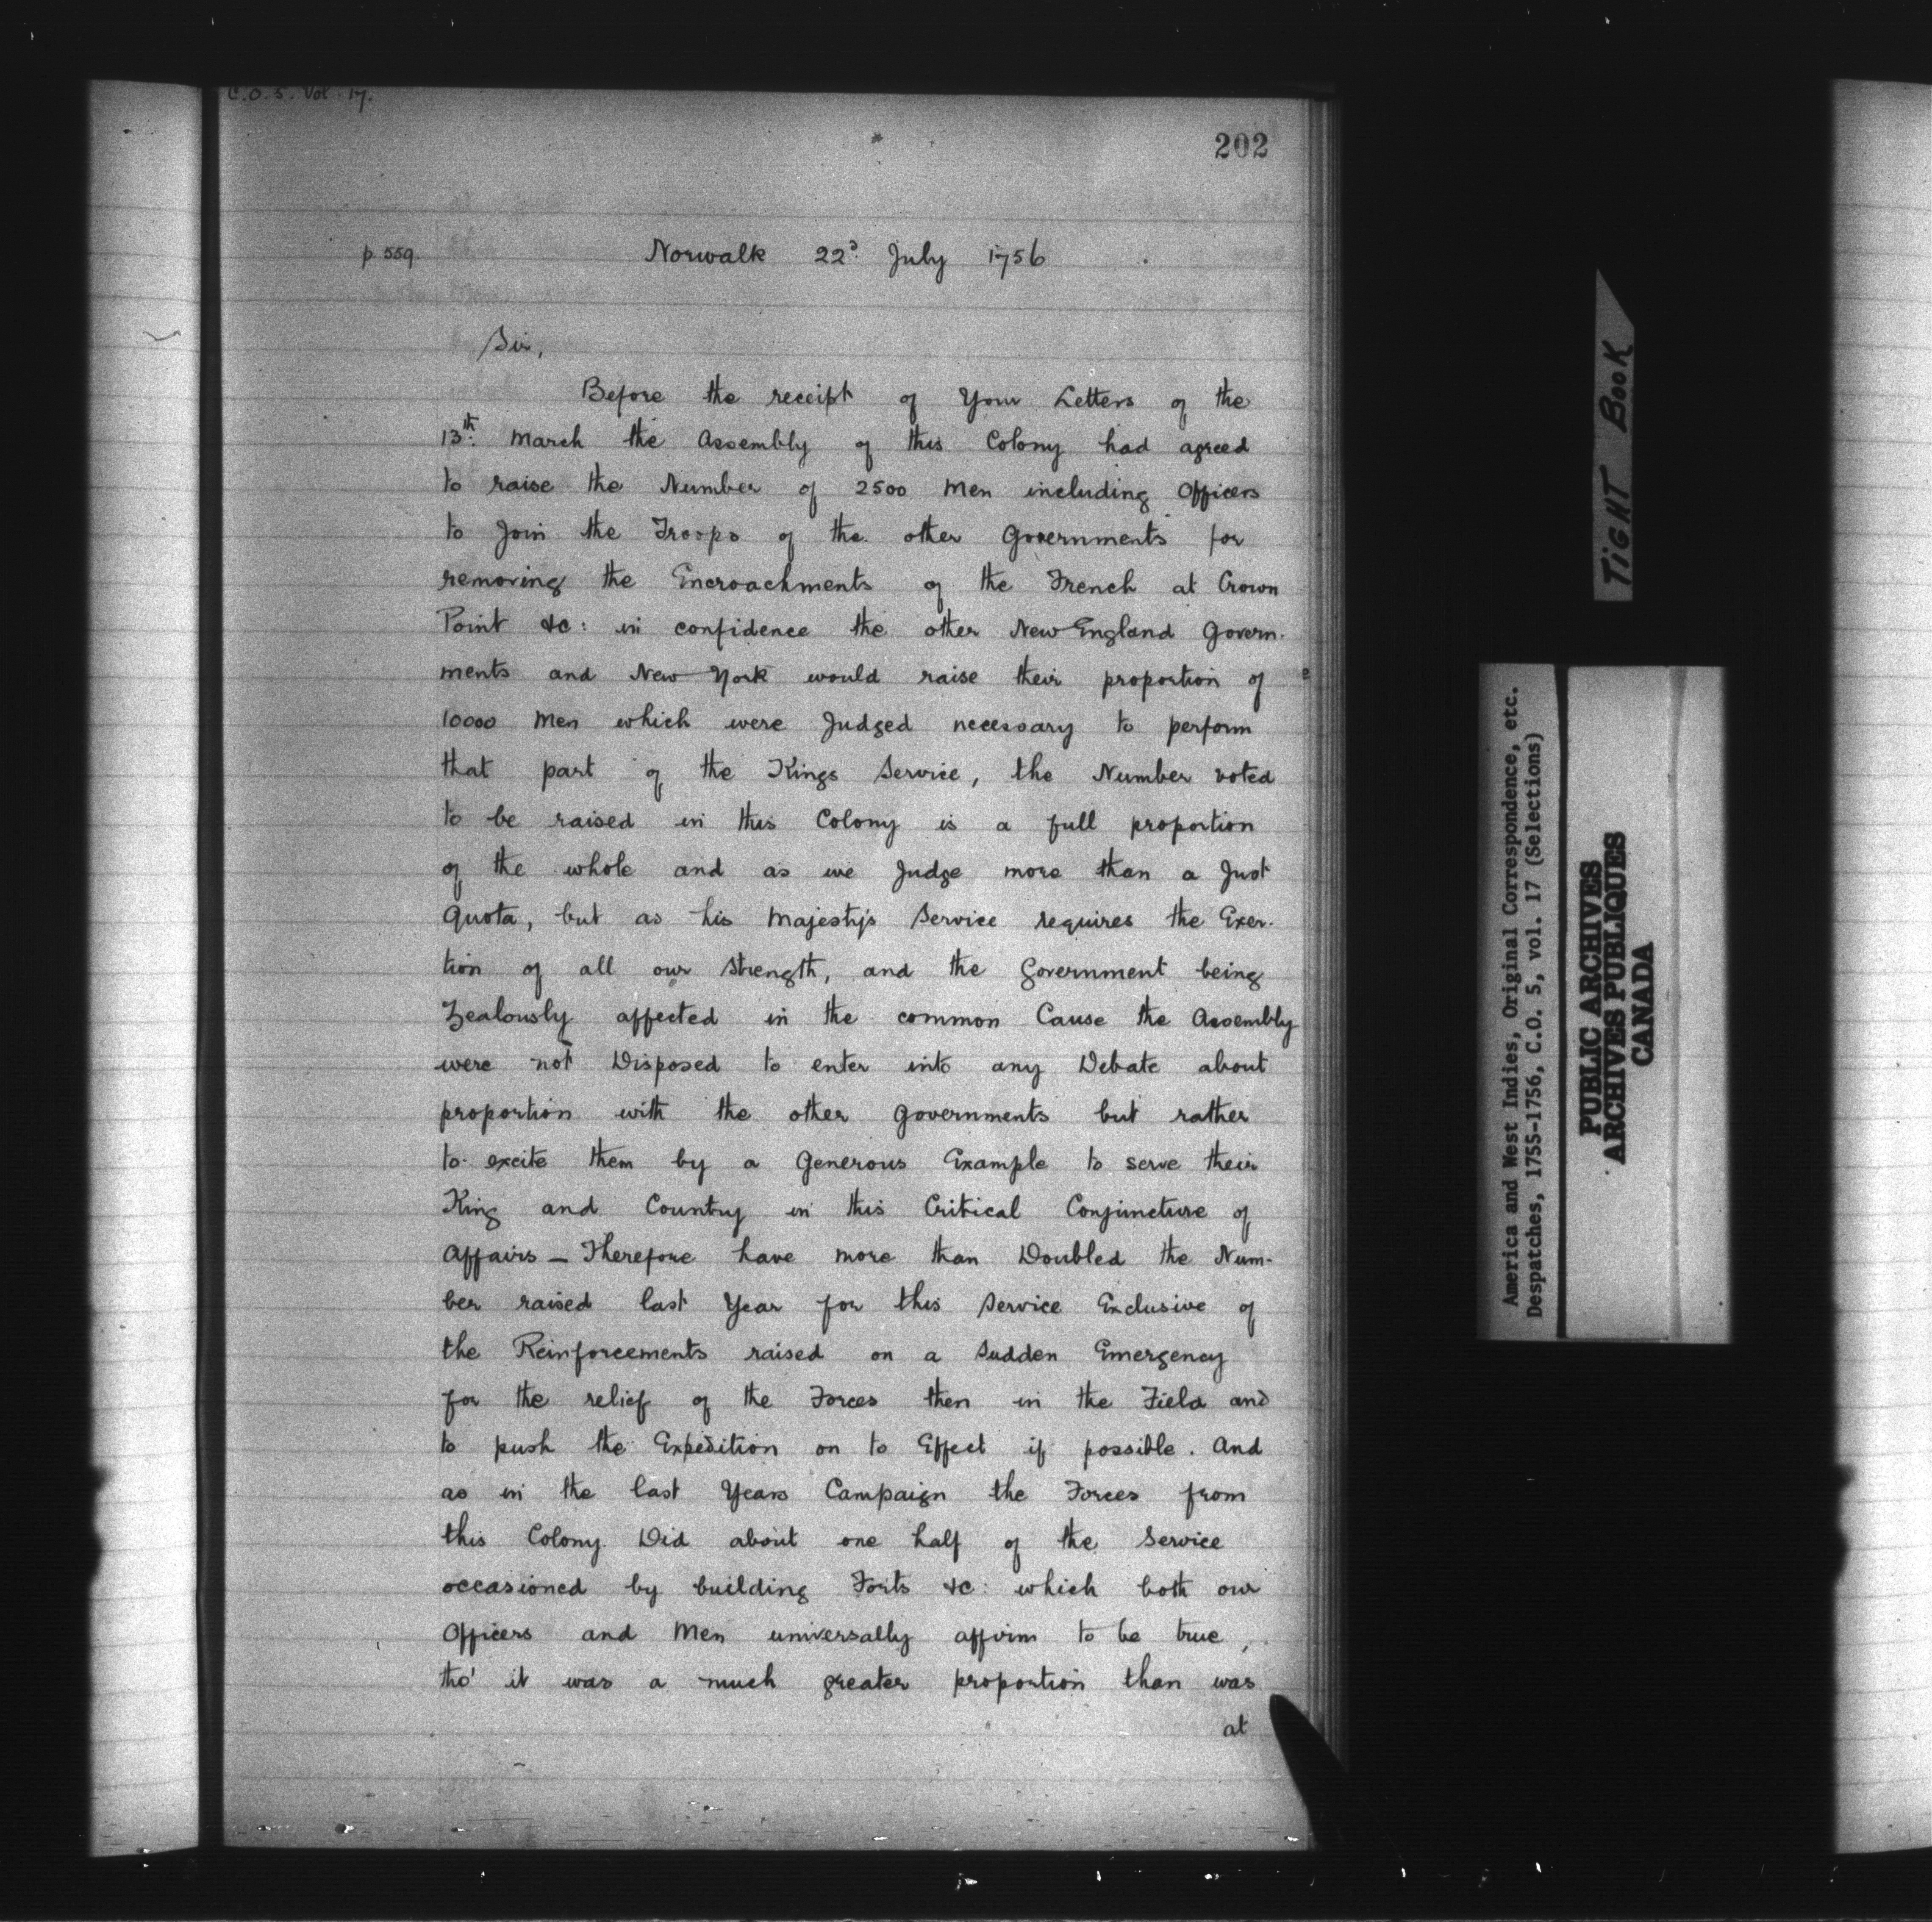 C.O. 5. Vol. 17.
202
p. 559. Norwalk 22d. July 1756
Sir,
Before the receipt of Your Letters of the
13th: March the Assembly of this Colony had agreed
to raise the Number of 2500 Men including Officers
to Join the Troops of the other Governments for
removing the Encroachments of the French at Crown
Point &c: in confidence the other New England Govern-
ments and New York would raise their proportion of
10000 Men which were Judged necessary to perform
that part of the Kings Service, the Number voted
to be raised in this Colony is a full proportion
of the whole and as we Judge more than a Just
Quota, but as his Majesty's Service requires the Exer-
tion of all our Strength, and the Government being
Zealously affected in the common Cause the Assembly
were not Disposed to enter into any Debate about
proportion with the other Governments but rather
to excite them by a Generous Example to serve their
King and Country in this Critical Conjuncture of
Affairs — Therefore have more than Doubled the Num-
ber raised last Year for this Service Exclusive of
the Reinforcements raised on a Sudden Emergency
for the relief of the Forces then in the Field and
to push the Expedition on to Effect if possible. And
as in the last Years Campaign the Forces from
this Colony Did about one half of the Service
occasioned by building Forts &c: which both our
Officers and Men universally affirm to be true,
tho' it was a much greater proportion than was
at
TIGHT BOOK
America and West Indies, Original Correspondence, etc.
Despatches, 1755-1756, C.O. 5, vol. 17 (Selections)
PUBLIC ARCHIVES
ARCHIVES PUBLIQUES
CANADA